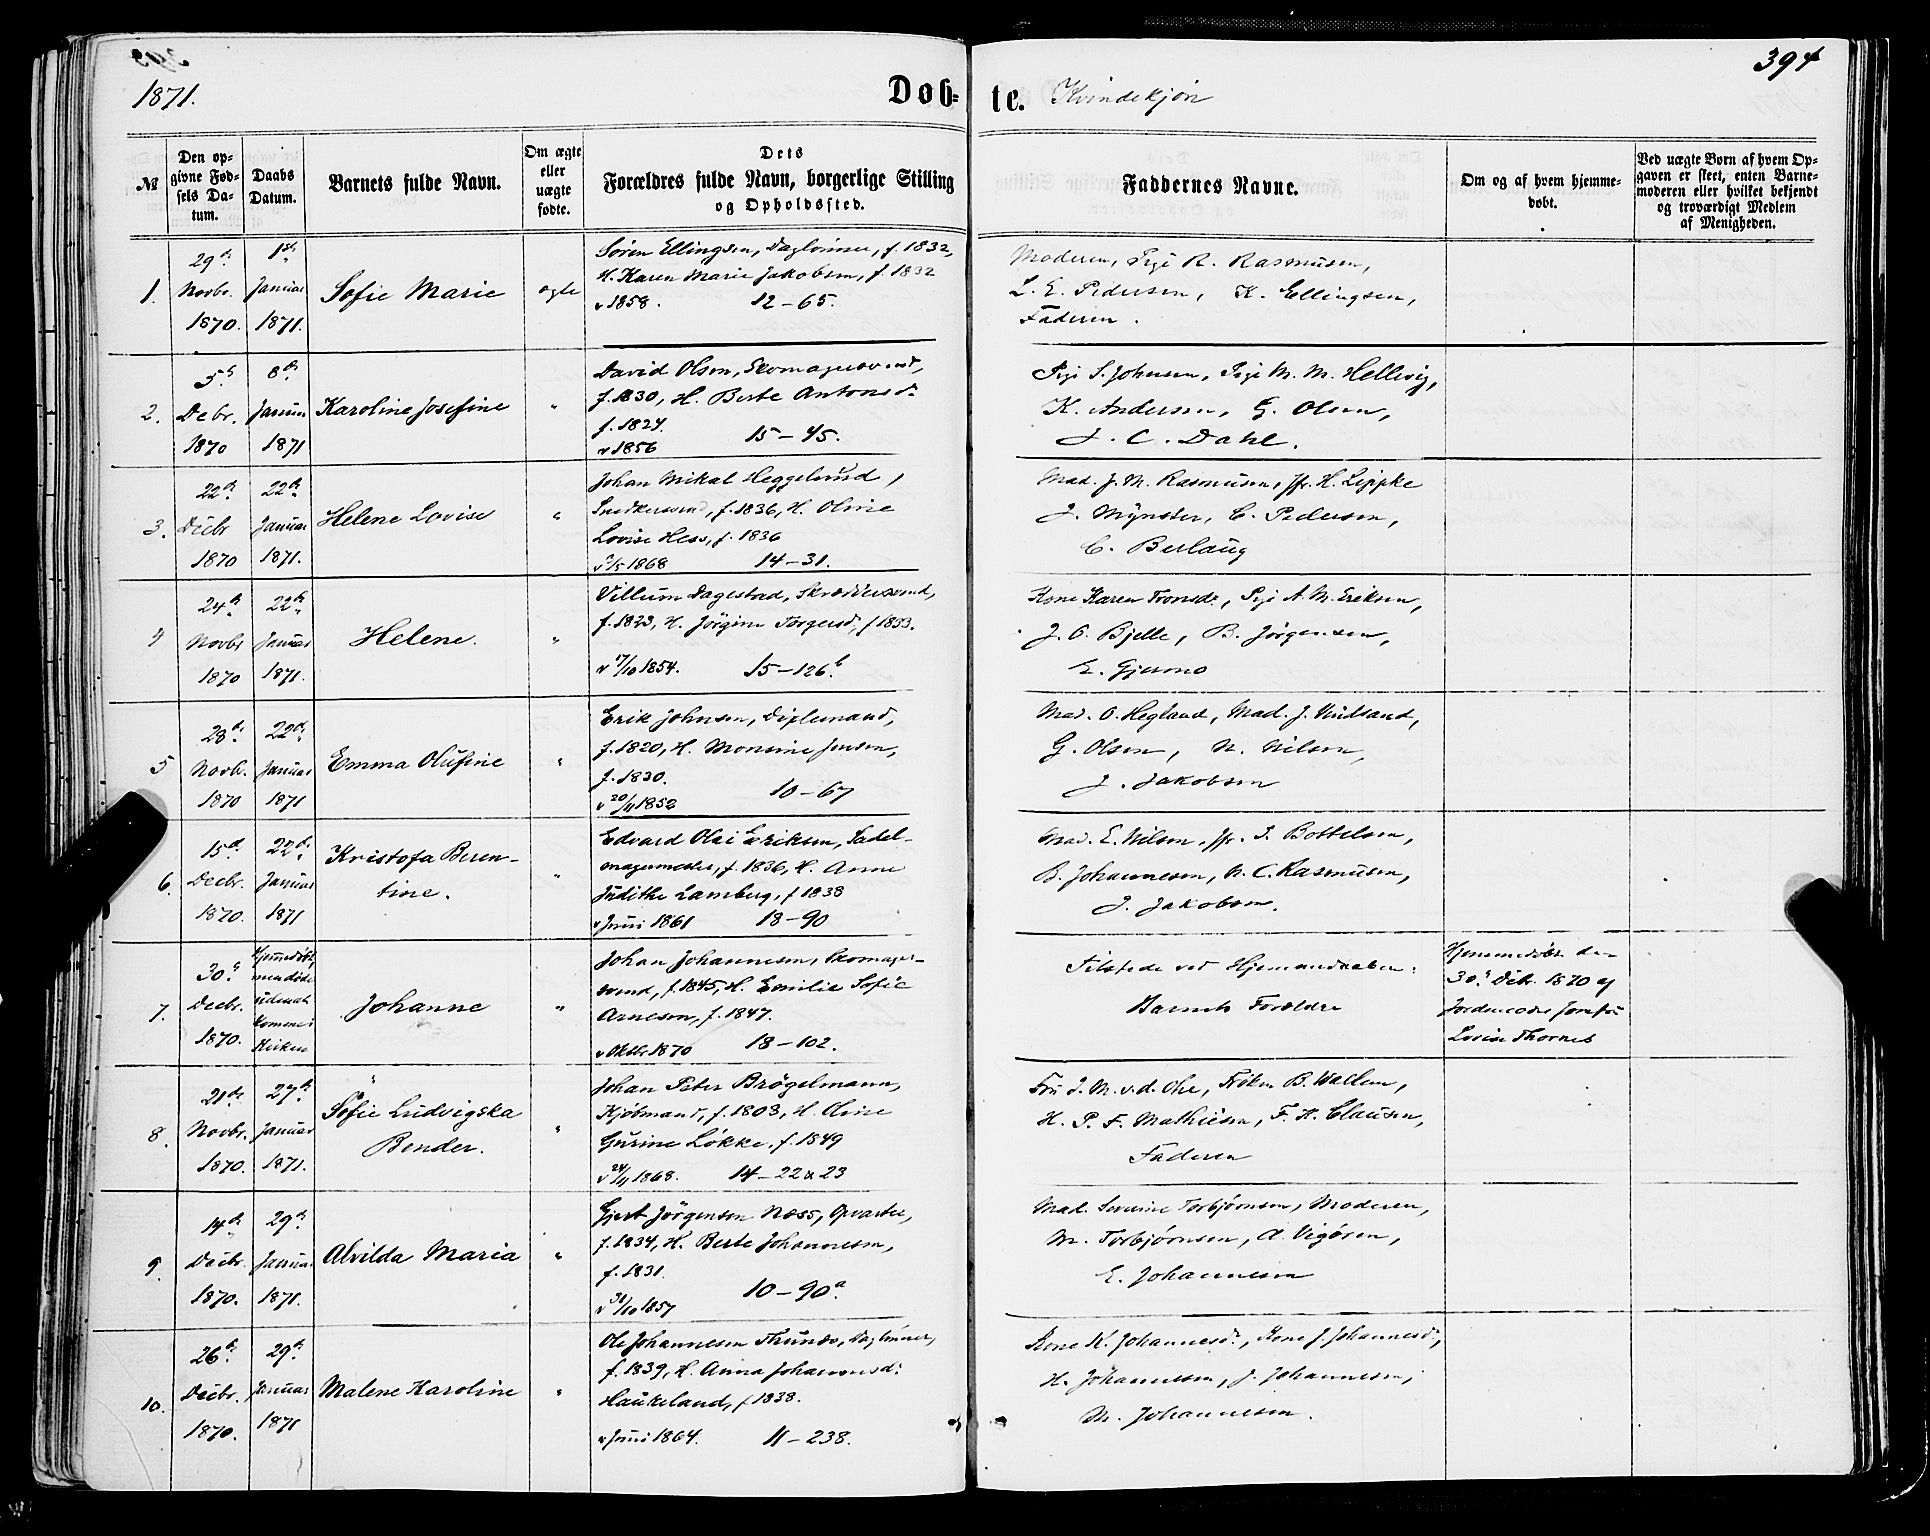 394
1871.
Døb- te. Kvindekjøn
№
Den op-
givne Fød-
sels Da-
tum.
Daabs
Datum.
Barnets fulde Navn.
Om ægte
eller
uægte
fødte.
Dets
Forældres fulde Navn, borgerlige Stilling
og Opholdssted.
Faddernes Navne.
Om og af hvem hjemme-
døbt.
Ved uægte Børn af hvem Op-
gaven er skeet, enten Barne-
moderen eller hvilket bekjendt
og troværdigt Medlem
af Menigheden.
1.
29de
Novbr.
1870.
1ste
Januar
1871.
Sofie Marie
ægte
Søren Ellingsen, Dagleiner, f. 1832,
H. Karen Marie Jakobsen, f. 1832
v 1858. 12-65.
Moderen, Pige R. Rasmusen,
L. E. Pedersen, K. Ellingsen,
Faderen.
2.
5te
Debr.
1870
8de
Januar
1871
Karoline Josefine
"
David Olsen, Skomagersvend,
f. 1830, H. Berte Antonsd.
f. 1824.
v 1856 15-45.
Pige S. Johnsen, Pige M. M. Hellevig,
K. Andersen, G. Olsen,
J. C. Dahl.
3.
22de
Decbr
1870
22de
Januar
1871.
Helene Lovise
"
Johan Mikal Heggelund,
Snedkersvend, f. 1836, H. Oline
Lovise Hess, f. 1836
1868 14-31.
Mad. J. M. Rasmusen, Jfr. H. Lippke
J. Mynster, C. Pedersen,
C. Berlaug
4
24de
Novbr
1870
22de
Januar
1871.
Helene.
"
Villum Dagestad, Skræddersvend,
f. 1823, H. Jørgine Torgersd, f 1833.
v 17/10 1854. 15-126b
Kone Karen Tronsd., Pige A. M. Eriksen,
J. O. Bjelle, B. Jørgensen,
E. Gjermo
5
28de
Novbr.
1870
22de
Januar
1871
Emma Olufine
"
Erik Johnsen, Diplemand,
f. 1820, H. Monsine Jensen,
f. 1830.
v 20/11 1852 10-67
Mad. O. Hegland, Mad. J. Knudsand,
G. Olsen, N. Nilsen,
J. Jakobsen
6.
15de
Decbr.
1870.
22de
Januar
1871
Kristofa Beren-
tine.
"
Edvard Olai Eriksen, Sadel-
magermester, f. 1836, H. Anne
Judithe Lamberg, f 1838
v Juni 1861 18-90
Mad. E. Nilsen, Jfr. I. Bottelsen,
B. Johannesen, N. C. Rasmusen,
J. Jakobsen.
7.
30te
Decbr.
1870.
Hjemmedøbt,
men døde
uden at
komme i
Kirken
Johanne
"
Johan Johannesen, Skomager-
svend, f. 1845, H. Emilie Sofie
Arnesen, f. 1847.
v Oktbr 1870 18-102.
Tilstede ved Hjemmedaaben:
Barnets Forældre
Hjemmedøbt den
30te Debr. 1870 af
Jordemoder Josefin
Lovise Thornes
8.
21de
Novbr.
1870.
27de
Januar
1871.
Sofie Ludvigska
Bender.
"
Johan Peter Brögelmann,
Kjøbmand, f. 1808, H. Oline
Gurine Løkke, f. 1849
v 24/4 1868. 14-22 & 23
Fru I. M. v. d. Ohe, Frøken B. Wallem,
H. P. F. Mathiesen, F. H. Clausen,
Faderen
9.
14de
Decbr.
1870.
29de
Januar
1871.
Alvilda Maria
"
Gjert Jørgensen Næss, Opvarter,
f. 1834, H. Berte Johannesen,
f. 1831.
v 31/10 1857 10-90a
Mad. Severine Torbjørnsen, Moderen,
M. Torbjørnsen, A. Vigøren,
E. Johannesen
10.
26de
Decbr.
1870.
29de
Januar
1871
Malene Karoline
"
Ole Johannesen Thunæs, Dagleiner,
f. 1839, H. Anna Johannesd.
Haukeland, f 1838.
v Juni 1864. 11-238.
Kone K. Johannesd., Kone J. Johannesd.,
H. Johannesen, J. Johannesen,
M. Johannesen.